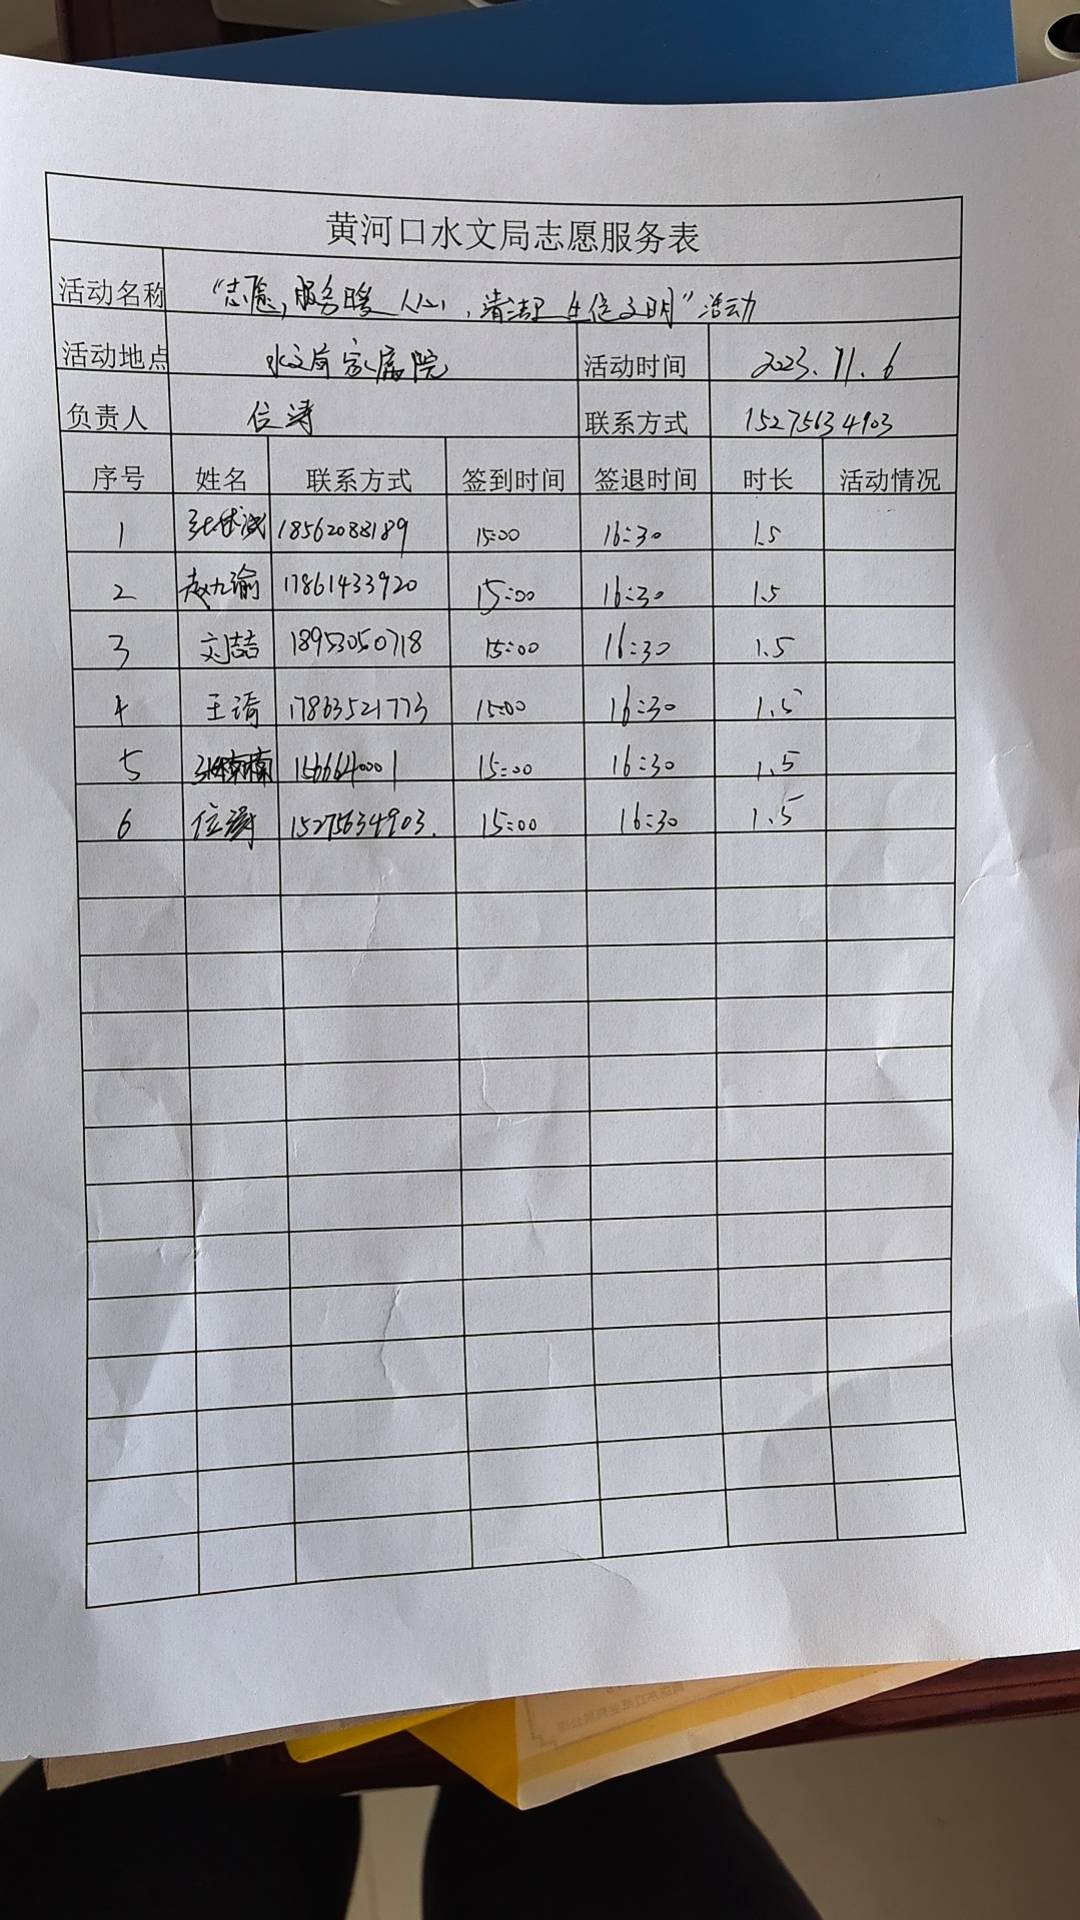 黄河口水文局志愿服务表
活动名称 “志愿服务暖人心，清洁卫生促文明”活动
活动地点 水文局家属院 活动时间 2023.11.6
负责人 位涛 联系方式 15275634903
序号 姓名 联系方式 签到时间 签退时间 时长 活动情况
1 18562088189 15:00 16:30 1.5
2 赵九瑜 17861433920 15:00 16:30 1.5
3 刘喆 18953050718 15:00 16:30 1.5
4 王诗 17863521773 15:00 16:30 1.5
5 15:00 16:30 1.5
6 位涛 15275634903. 15:00 16:30 1.5